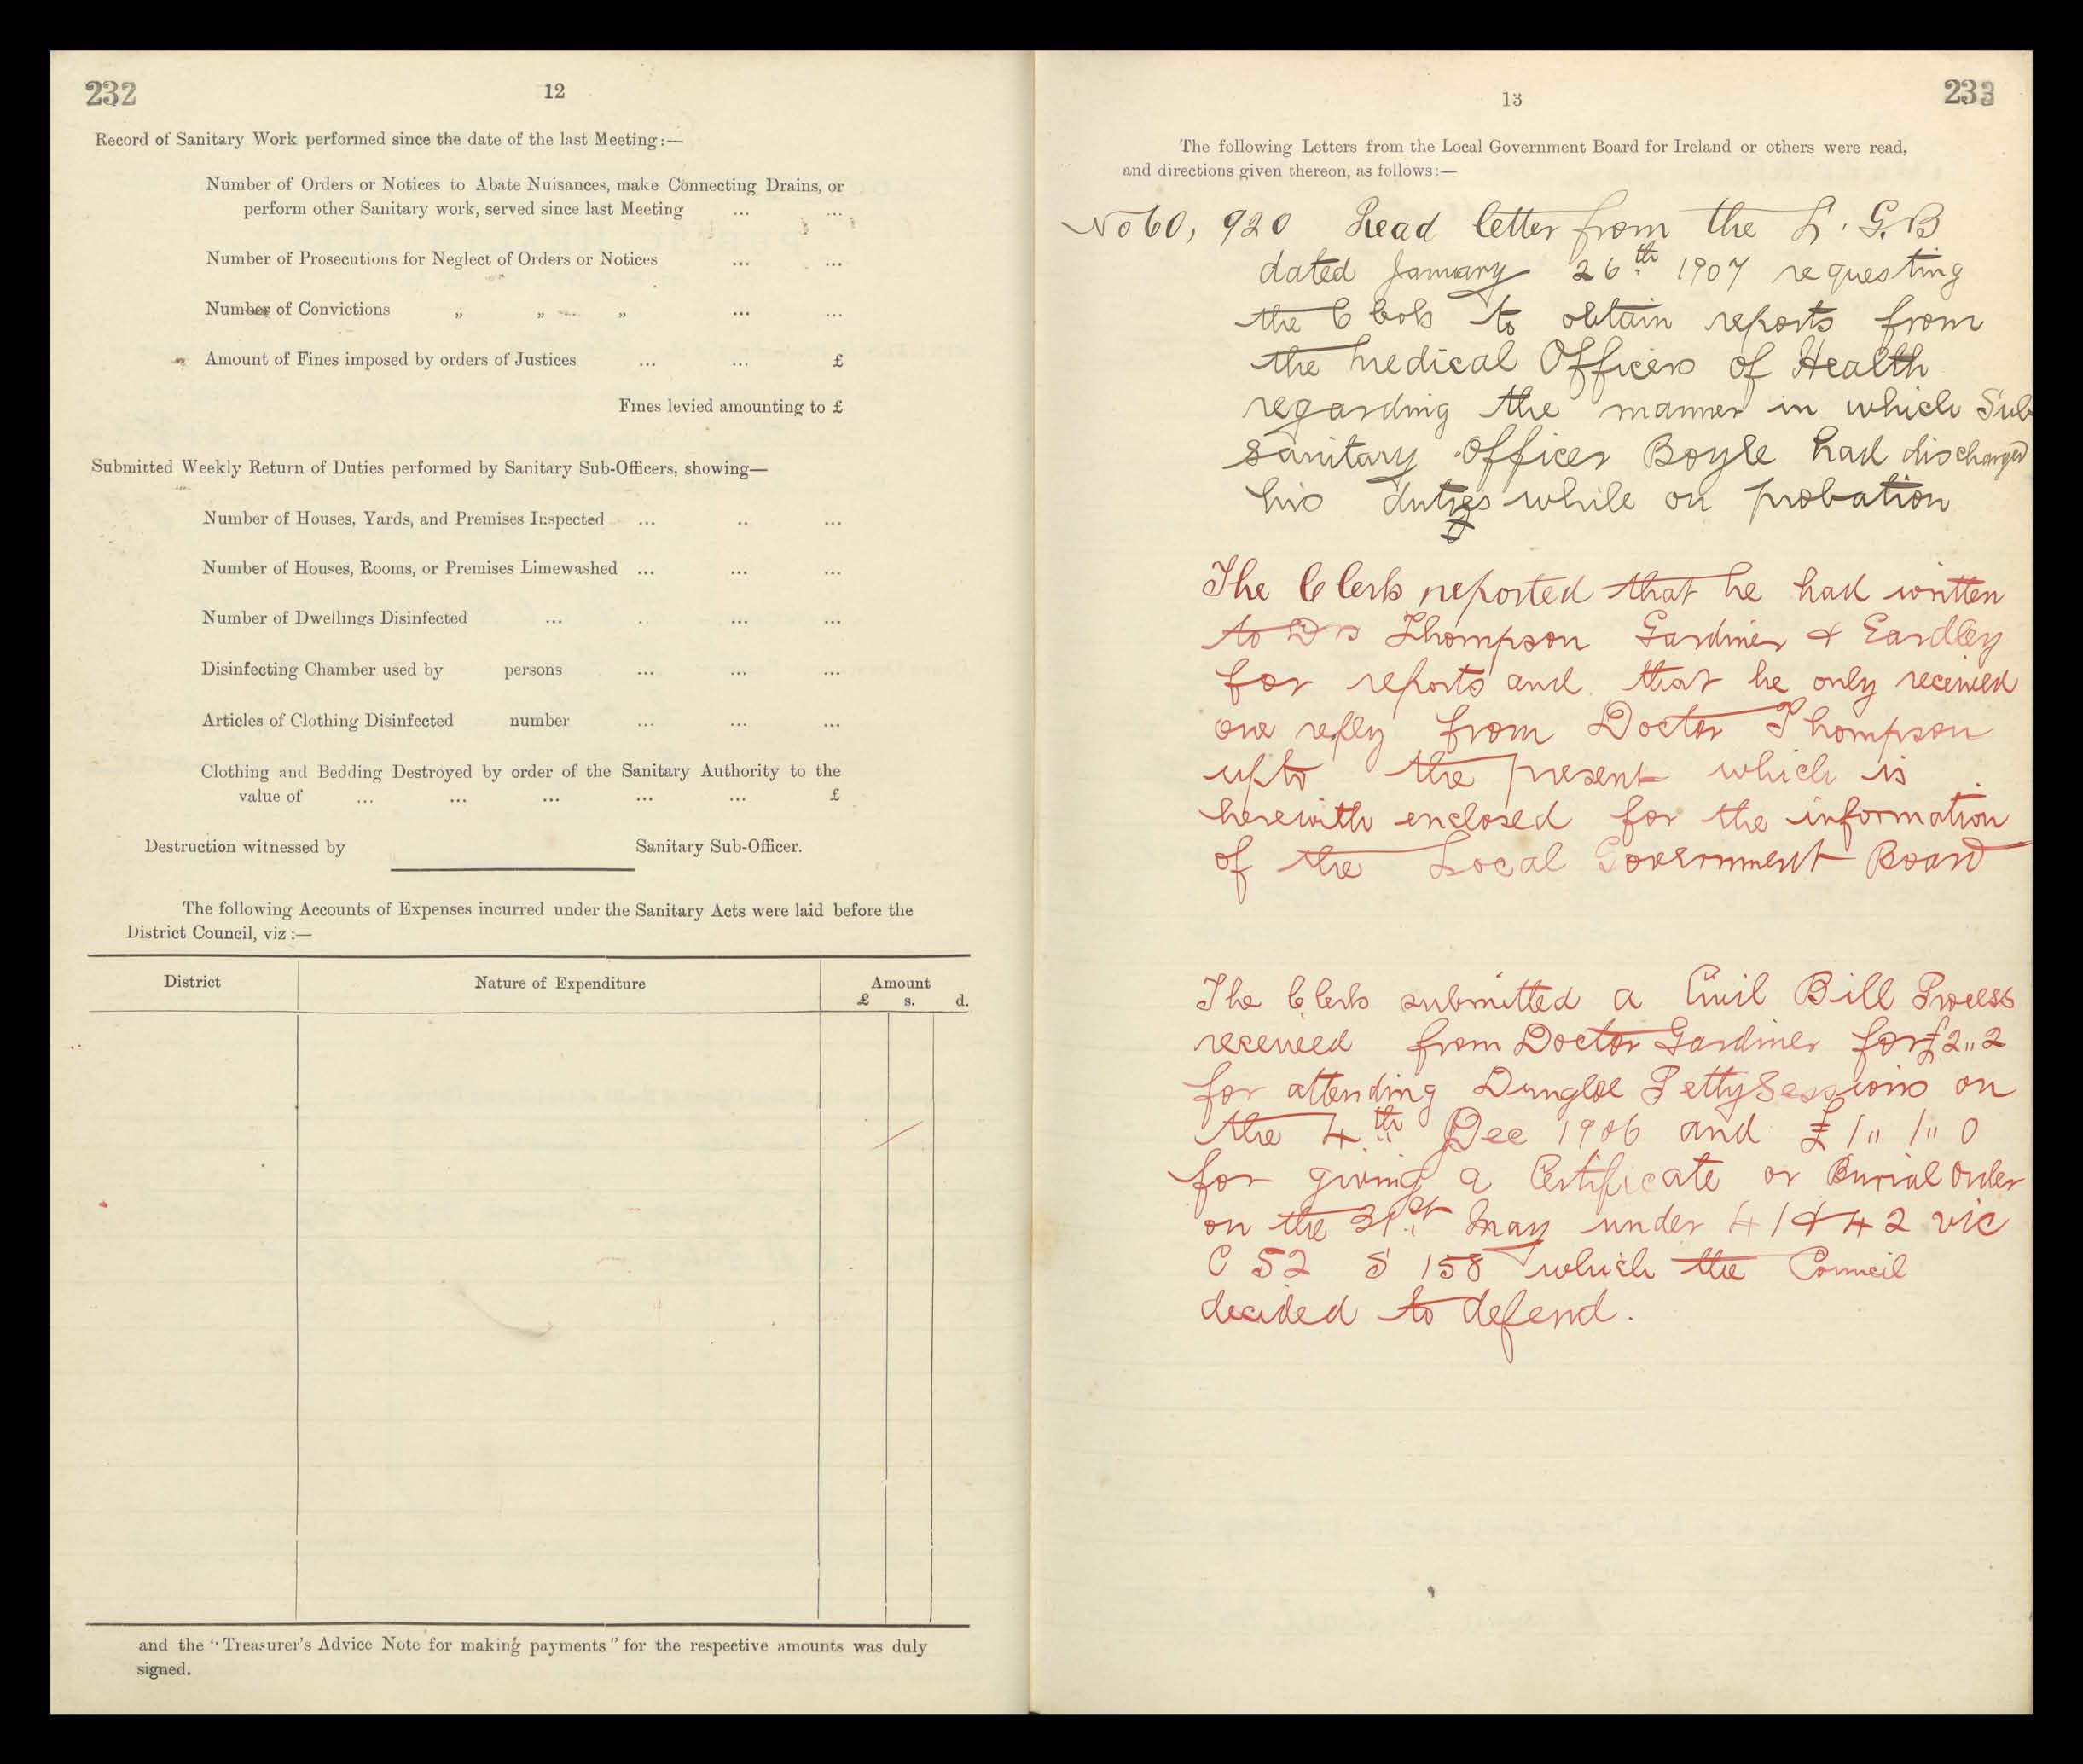 232
12
Record of Sanitary Work performed since the date of the last Meeting:—
Number of Orders or Notices to Abate Nuisances, make Connecting Drains, or
perform other Sanitary work, served since last Meeting ... ...
Number of Prosecutions for Neglect of Orders or Notices ... ...
Number of Convictions „ „ „ ... ...
Amount of Fines imposed by orders of Justices ... ... £
Fines levied amounting to £
Submitted Weekly Return of Duties performed by Sanitary Sub-Officers, showing—
Number of Houses, Yards, and Premises Inspected ... .. ...
Number of Houses, Rooms, or Premises Limewashed ... ... ...
Number of Dwellings Disinfected ... . ... ...
Disinfecting Chamber used by persons ... ... ...
Articles of Clothing Disinfected number ... ... ...
Clothing and Bedding Destroyed by order of the Sanitary Authority to the
value of ... ... ... ... ... £
Destruction witnessed by Sanitary Sub-Officer.
The following Accounts of Expenses incurred under the Sanitary Acts were laid before the
District Council, viz :—
District Nature of Expenditure Amount
£ s. d.
and the "Treasurer's Advice Note for making payments" for the respective amounts was duly
signed.
13
233
The following Letters from the Local Government Board for Ireland or others were read,
and directions given thereon, as follows:—
No 60, 920 Read letter from the L. G. B
dated January 26th 1907 requesting
the Clerk to obtain reports from
the Medical Officers of Health
regarding the manner in which Sub
Sanitary Officer Boyle had discharged
his duties while on probation
The Clerk reported that he had written
to Drs Thompson Gardiner & Eardley
for reports and that he only received
one reply from Doctor Thompson
upto the present which is
herewith enclosed for the information
of the Local Government Board
The Clerk submitted a Civil Bill Process
received from Doctor Gardiner for £2„2
for attending Dungloe Petty Sessions on
the 4th Dec 1906 and £1„ 1„ 0
for giving a Certificate or Burial Order
on the 31st May under 41 & 42 vic
C 52 S 158 which the Council
decided to defend.